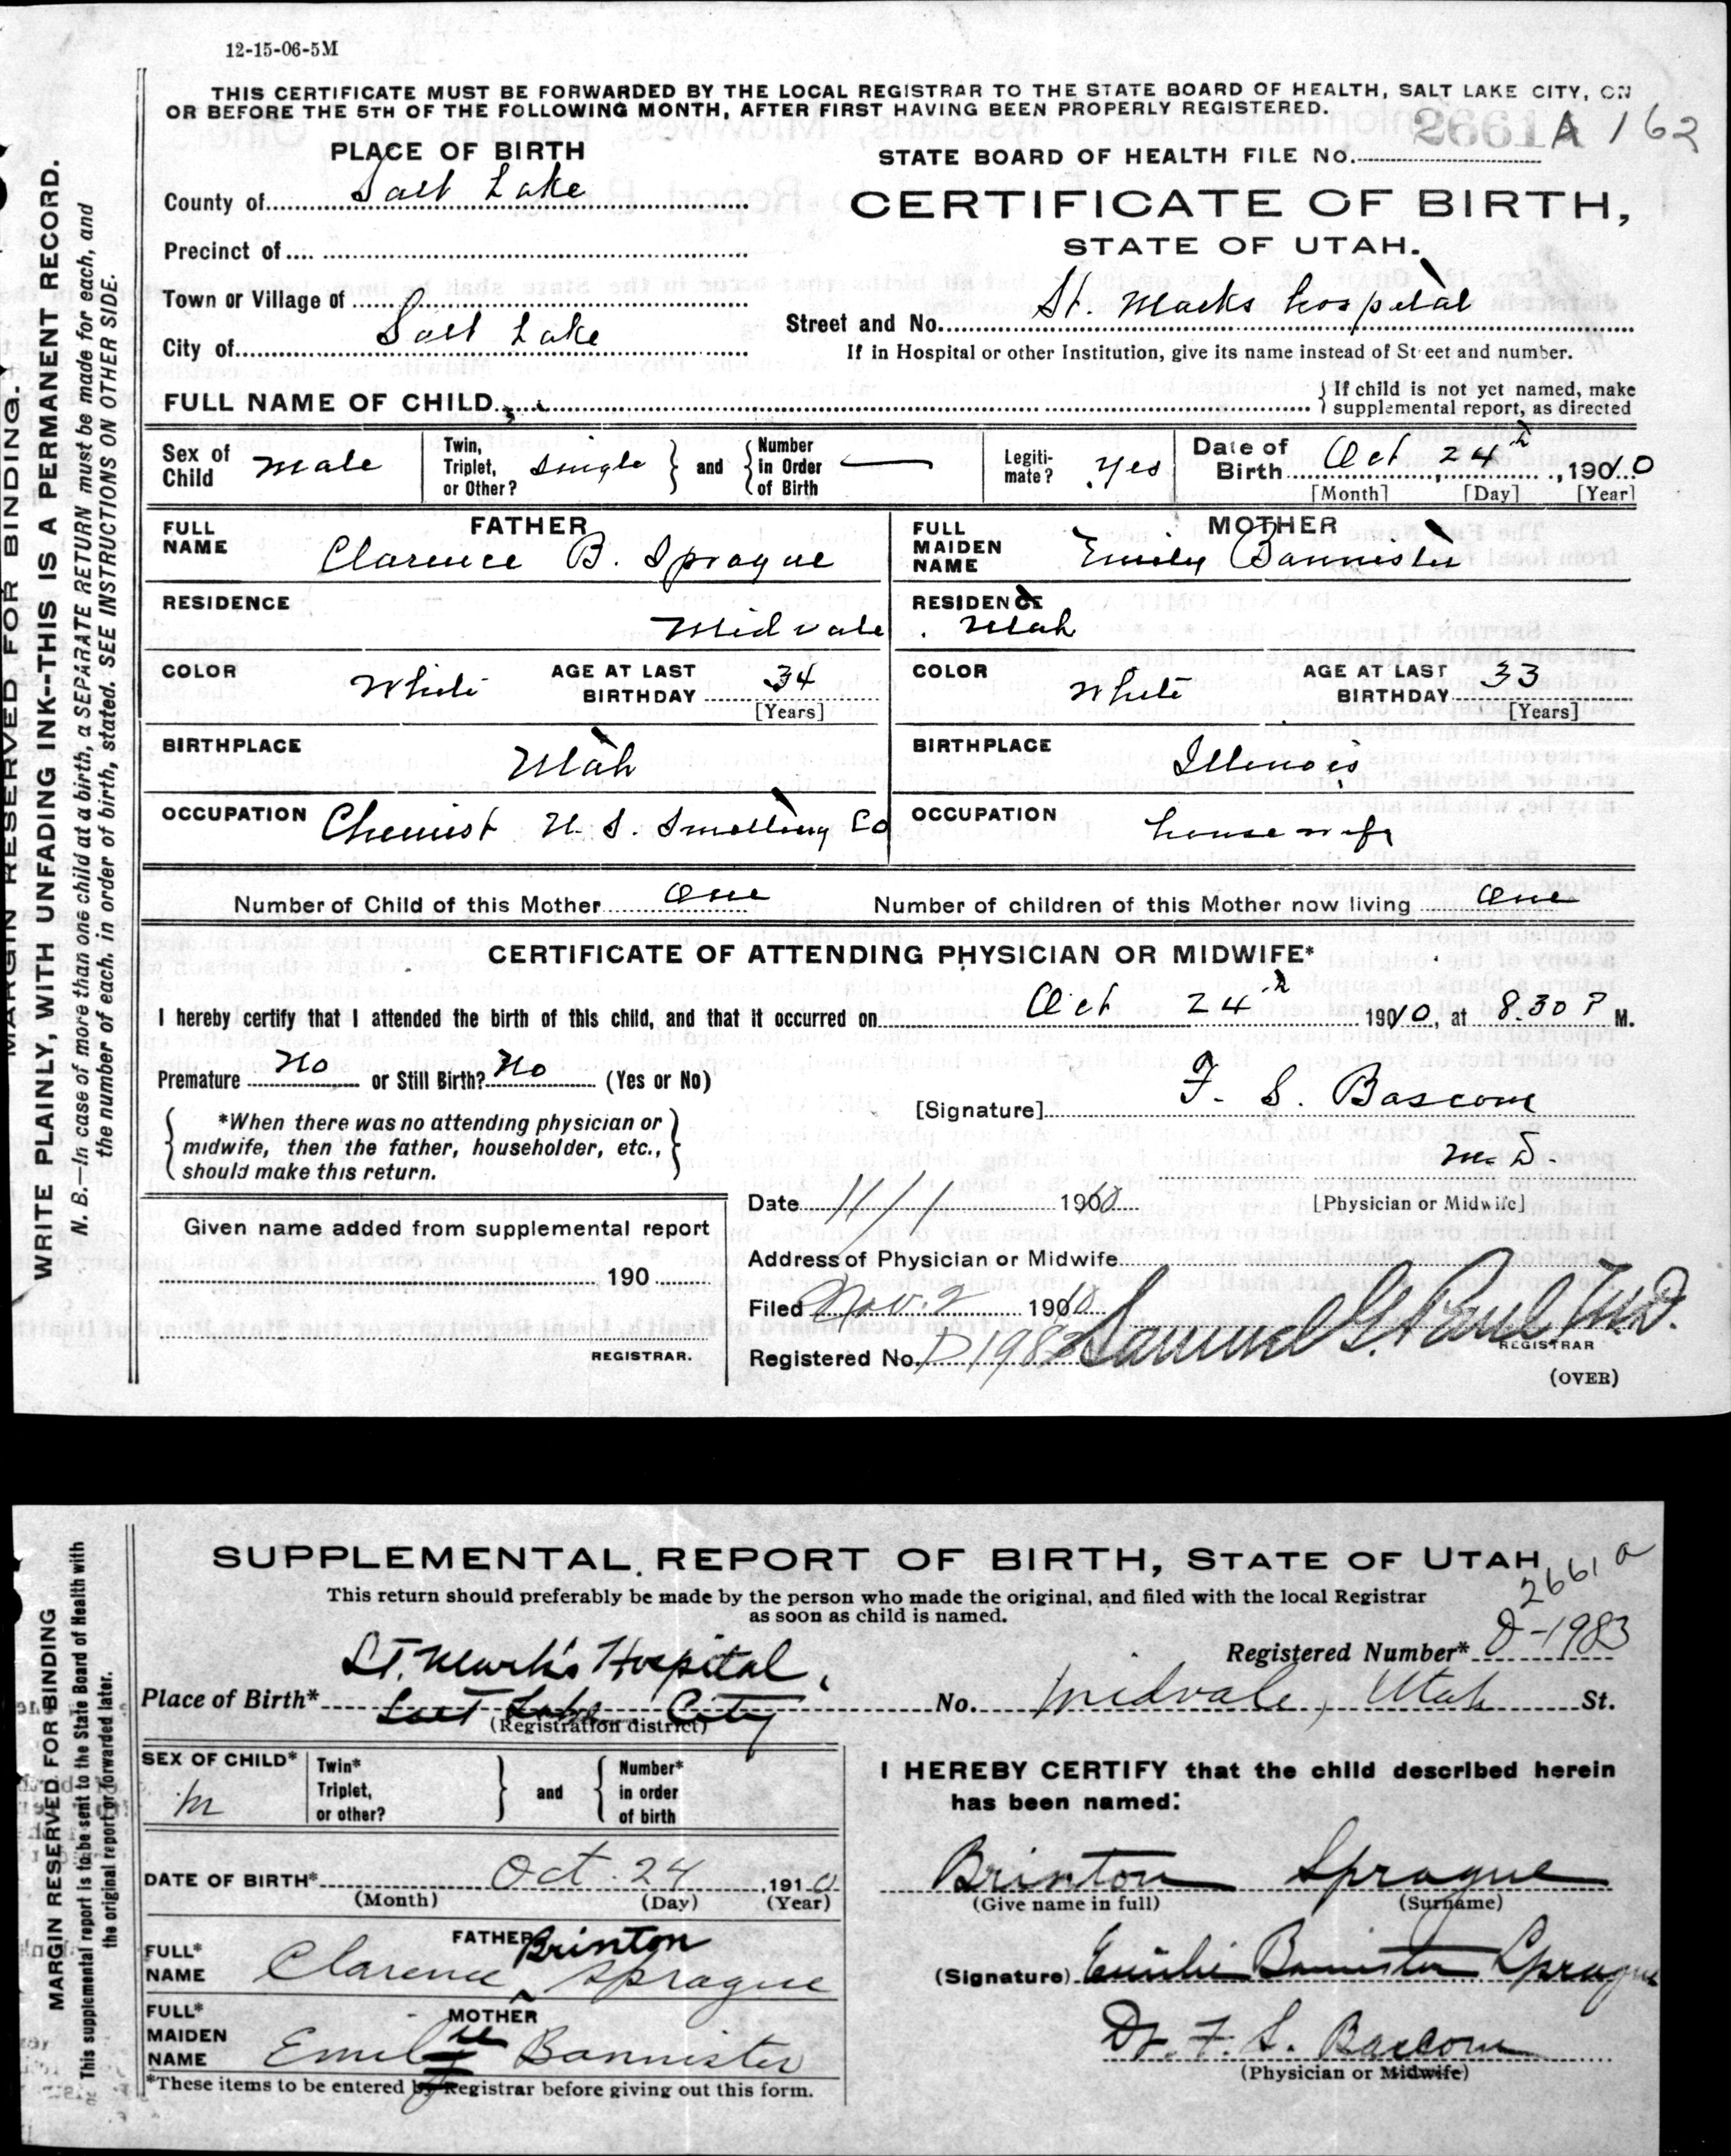 12-15-06-5M
THIS CERTIFICATE MUST BE FORWARDED BY THE LOCAL REGISTRAR TO THE STATE BOARD OF HEALTH, SALT LAKE CITY, ON
OR BEFORE THE 5TH OF THE FOLLOWING MONTH, AFTER FIRST HAVING BEEN PROPERLY REGISTERED.
2661 A 162
STATE BOARD OF HEALTH FILE No.
PLACE OF BIRTH
County of Salt Lake
CERTIFICATE OF BIRTH,
STATE OF UTAH.
Precinct of
Town or Village of
City of Salt Lake
Street and No. St. Marks hospital
If in Hospital or other Institution, give its name instead of Street and number.
FULL NAME OF CHILD
If child is not yet named, make
supplemental report, as directed
Sex of Child male
Twin, Triplet, or Other? single and Number in Order of Birth —
Legitimate? yes
Date of Birth Oct 24th, 1910
[Month] [Day] [Year]
FATHER
FULL NAME Clarence B. Sprague
MOTHER
FULL MAIDEN NAME Emily Bannister
RESIDENCE Midvale
RESIDENCE Utah
COLOR White AGE AT LAST BIRTHDAY 34 [Years]
COLOR White AGE AT LAST BIRTHDAY 33 [Years]
BIRTHPLACE Utah
BIRTHPLACE Illinois
OCCUPATION Chemist U. S. Smelting Co
OCCUPATION housewife
Number of Child of this Mother One Number of children of this Mother now living One
CERTIFICATE OF ATTENDING PHYSICIAN OR MIDWIFE*
I hereby certify that I attended the birth of this child, and that it occurred on Oct 24th 1910, at 8:30 P M.
Premature No or Still Birth? No (Yes or No)
[Signature] F. S. Bascom
M. D.
[Physician or Midwife]
*When there was no attending physician or
midwife, then the father, householder, etc.,
should make this return.
Given name added from supplemental report
190
REGISTRAR.
Date 11/1 1910
Address of Physician or Midwife
Filed Nov. 2 1910
Registered No. D1983 Samuel G. Paul M.D.
REGISTRAR
(OVER)
MARGIN RESERVED FOR BINDING.
WRITE PLAINLY, WITH UNFADING INK--THIS IS A PERMANENT RECORD.
N. B.—In case of more than one child at a birth, a SEPARATE RETURN must be made for each, and
the number of each, in order of birth, stated. SEE INSTRUCTIONS ON OTHER SIDE.
SUPPLEMENTAL REPORT OF BIRTH, STATE OF UTAH
This return should preferably be made by the person who made the original, and filed with the local Registrar
as soon as child is named.
2661 a
Registered Number* D-1983
St. Mark's Hospital,
Place of Birth* Salt Lake City No. Midvale, Utah St.
(Registration district)
SEX OF CHILD* m
Twin* Triplet, or other? and Number* in order of birth
DATE OF BIRTH* Oct. 24, 1910
(Month) (Day) (Year)
I HEREBY CERTIFY that the child described herein
has been named:
Brinton Sprague
(Give name in full) (Surname)
FATHER
FULL* NAME Clarence Brinton Sprague
MOTHER
FULL* MAIDEN NAME Emilie Bannister
(Signature) Emilie Bannister Sprague
Dr. F. S. Bascom
(Physician or Midwife)
*These items to be entered by Registrar before giving out this form.
MARGIN RESERVED FOR BINDING
This supplemental report is to be sent to the State Board of Health with
the original report or forwarded later.